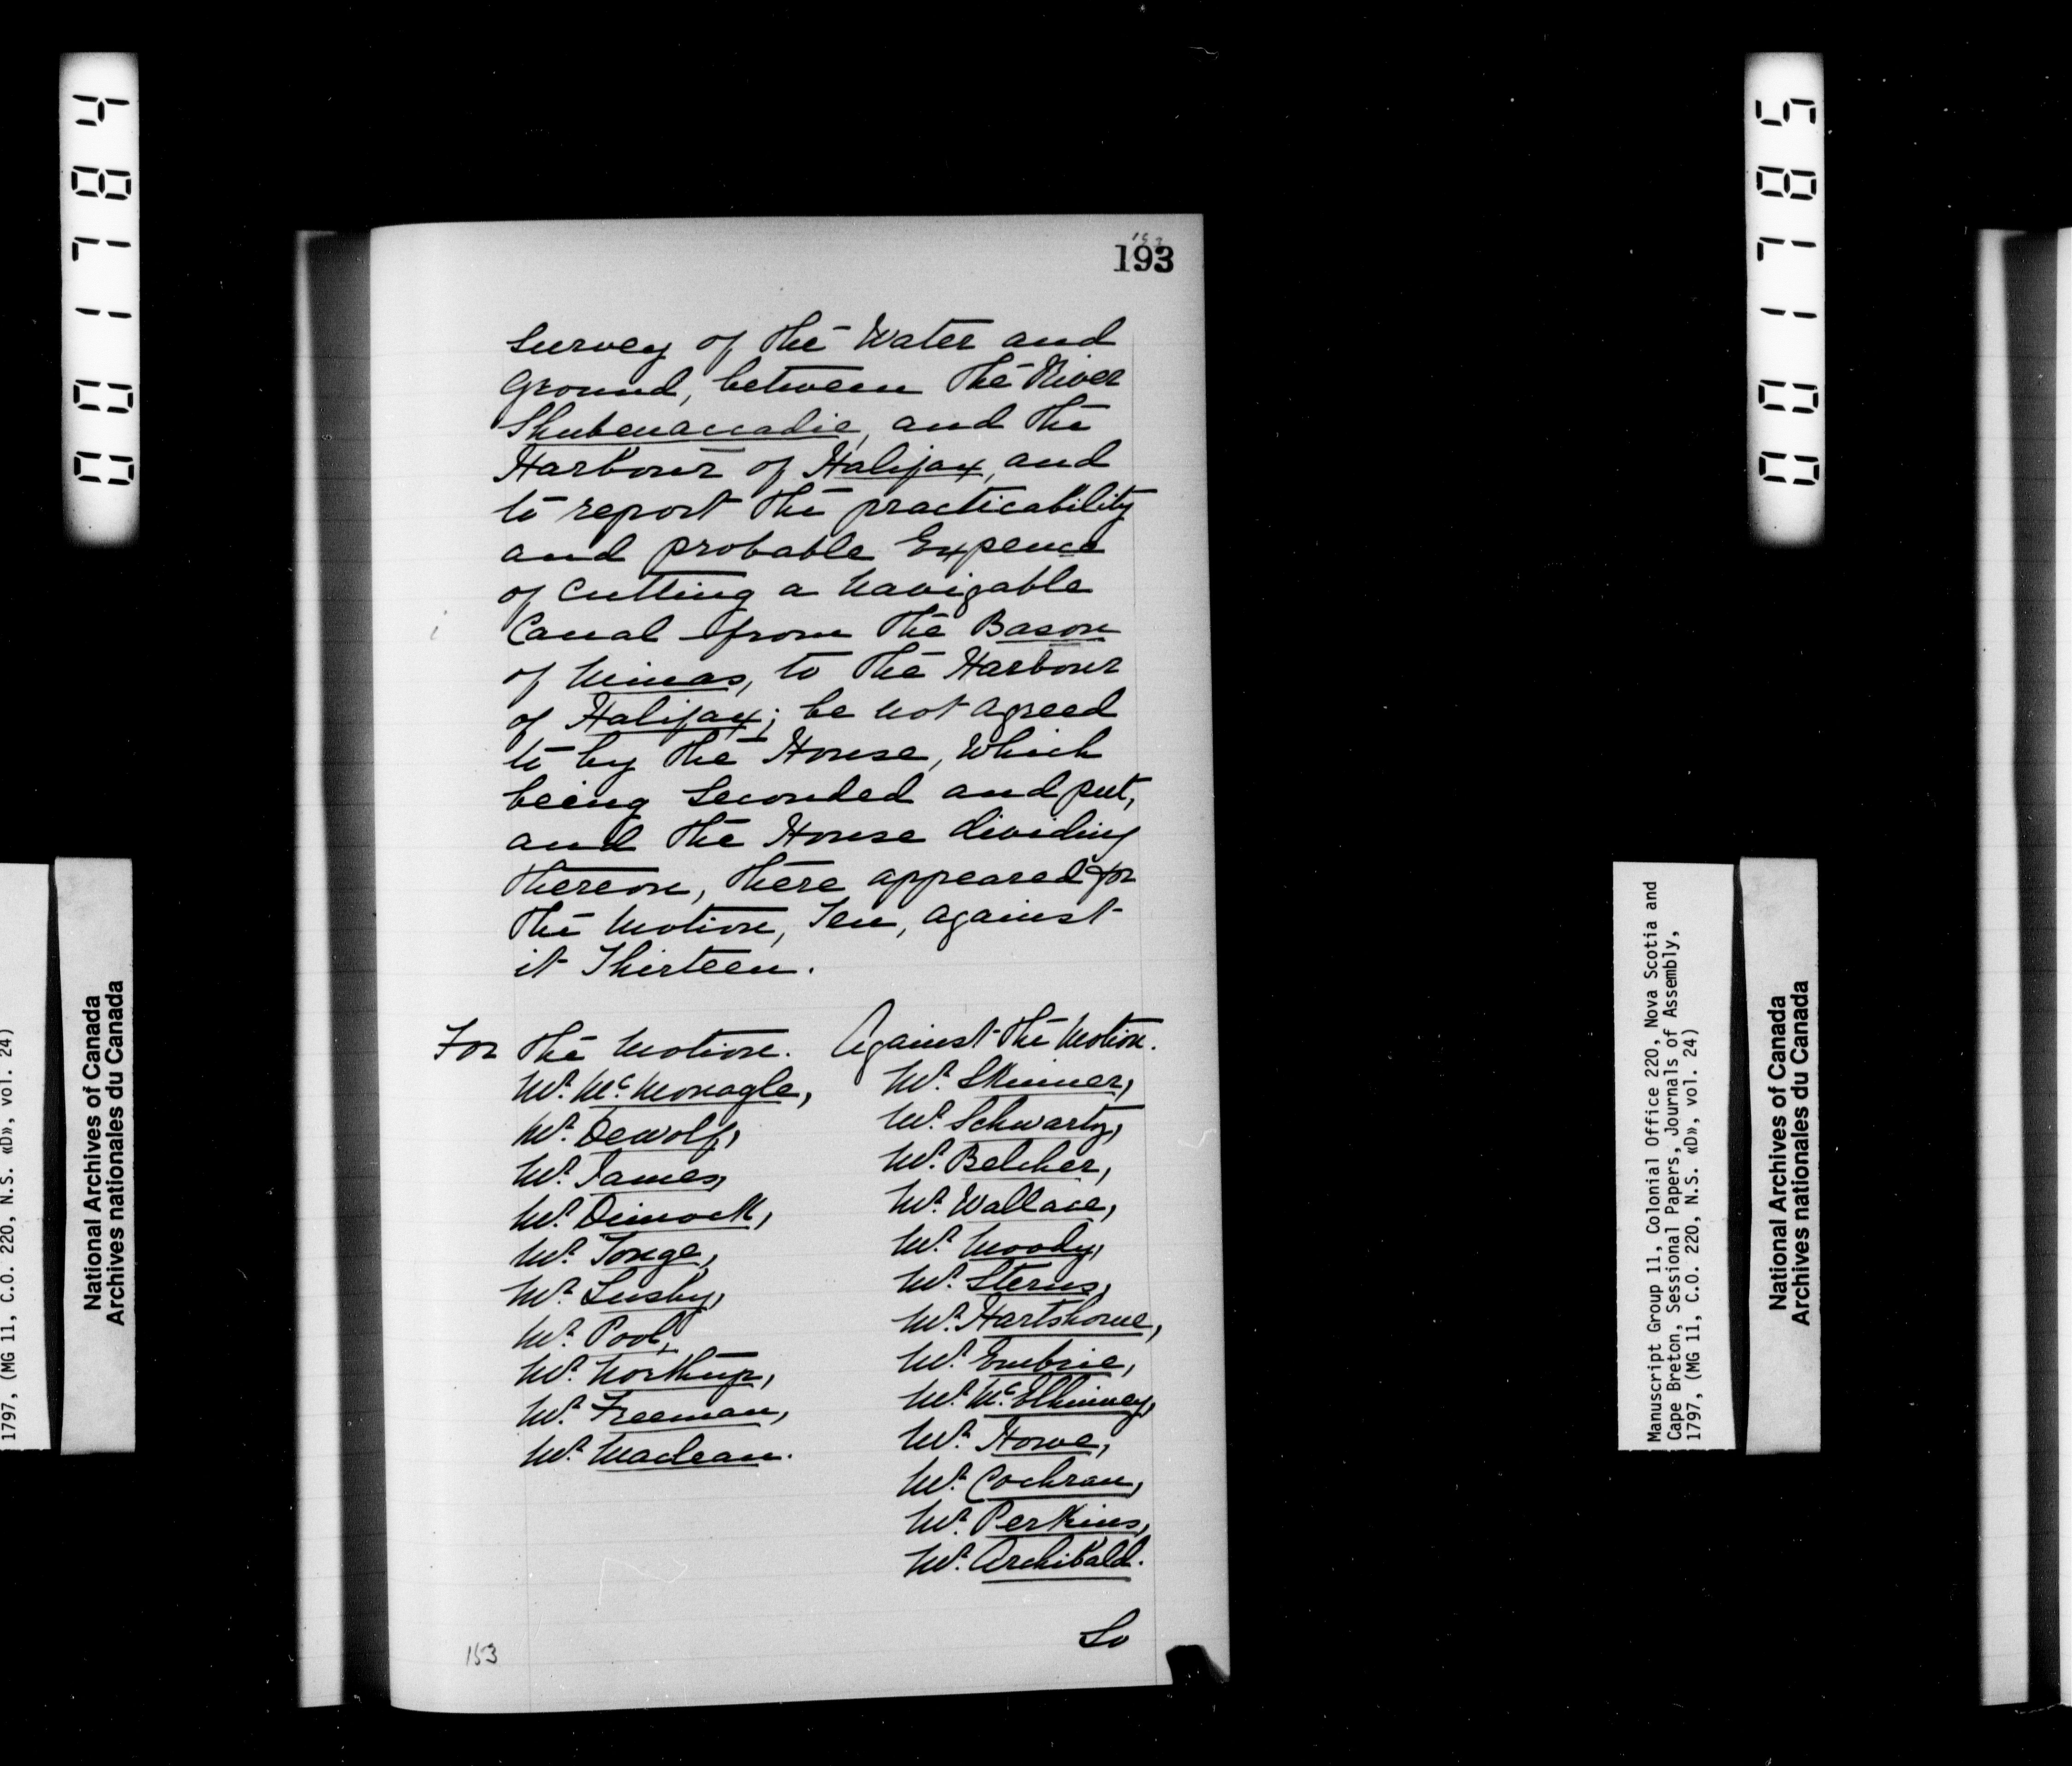 001784
001785
193
153
Survey of the Water and
Ground, between the River
Shubenaccadie, and the
Harbour of Halifax, and
to report the practicability
and probable Expence
of Cutting a Navigable
Canal from the Bason
of Minas, to the Harbour
of Halifax; be not agreed
to by the House, Which
being Seconded and put,
and the House dividing
thereon, there appeared for
the Motion, Ten, against
it Thirteen.
For the Motion.
Mr. Mc.Monagle,
Mr. Dewolf,
Mr. James,
Mr. Dimock,
Mr. Tonge,
Mr. Lusby,
Mr. Pool,
Mr. Northup,
Mr. Freeman,
Mr. Maclean.
Against the Motion.
Mr. Skinner,
Mr. Schwartz,
Mr. Belcher,
Mr. Wallace,
Mr. Moody,
Mr. Sterns,
Mr. Hartshorne,
Mr. Embrie,
Mr. Mc.Elhinney,
Mr. Howe,
Mr. Cochran,
Mr. Perkins,
Mr. Archibald.
So
153
1797, (MG 11, C.O. 220, N.S. «D», vol. 24)
National Archives of Canada
Archives nationales du Canada
Manuscript Group 11, Colonial Office 220, Nova Scotia and
Cape Breton, Sessional Papers, Journals of Assembly,
1797, (MG 11, C.O. 220, N.S. «D», vol. 24)
National Archives of Canada
Archives nationales du Canada